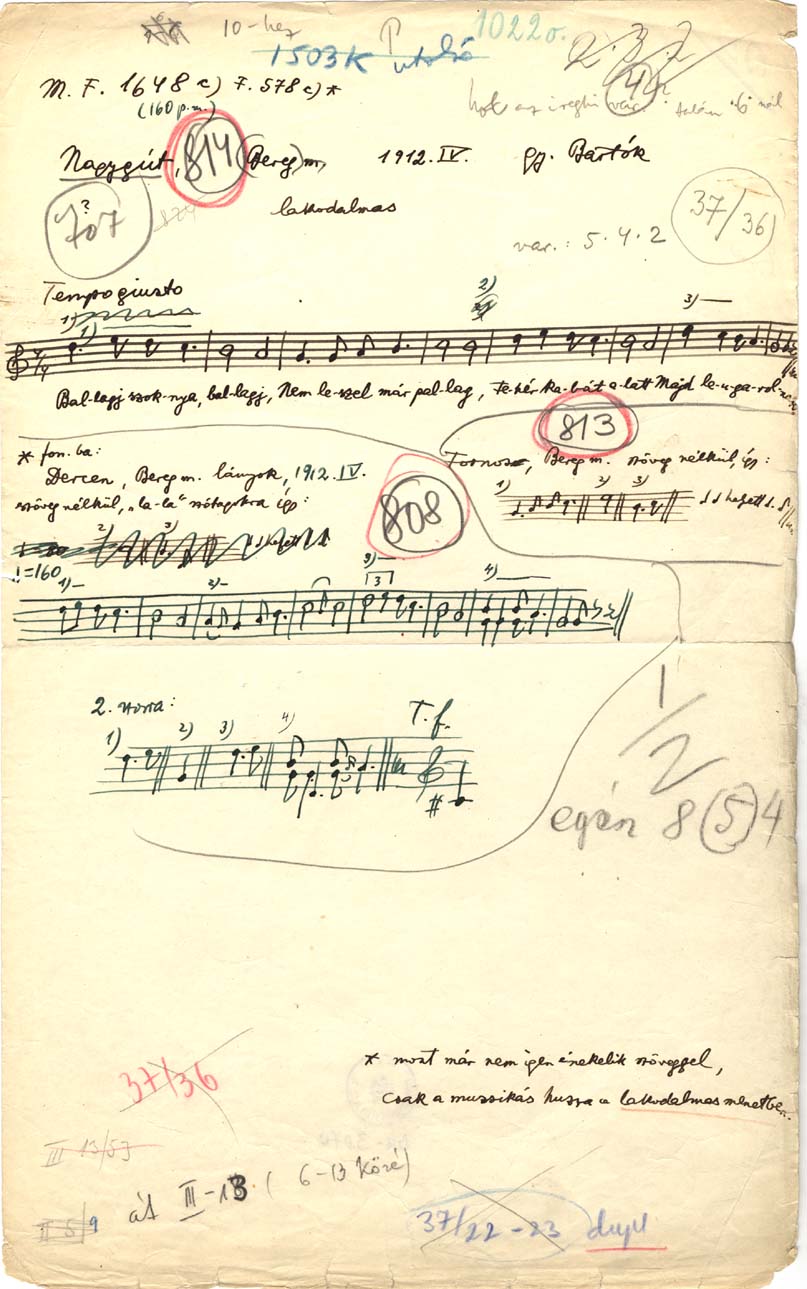 10-hez
1022o.
1503K utolsó
2.3.2
M. F. 1648 c) F. 578 c) *
(160 p.m.)
4
hol az ireghi var. talán 6 nál
Nagygút, 814 (Bereg) m, 1912. IV. gy. Bartók
707 ?
824
lakodalmas
37/36
var.: 5.4.2
Tempo giusto
1)
1) 2) 3)
Bal-lagj szok-nya, bal-lagj, Nem le-szel már pal-lag, Fe-hér ka-bát a-latt Majd le-u-ga-rol-
813
* fon. ba:
Dercen, Bereg m. lányok, 1912. IV.
szöveg nélkül, „la-la" szótagokra így:
808
Tornos, Bereg m. szöveg nélkül, így:
1) 2) 3)
helyett
2) 3)
=160
1) 2) 3) 3 4)
2. strófa: T. f.
1) 2) 3) 4)
1/2
egén 8 (5) 4
* most már nem igen éneklik szöveggel,
csak a muzsikás huzza a lakodalmas menetben.
37/36
III 13/53
át III-13 (6-13 közé)
II 5/9
37/22-23 dupl